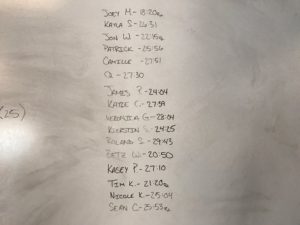 JOEY M - 18:20
KAYLA S - 26:31
JON W - 22:15
PATRICK - 25:56
CAMILLE - 27:51
- 27:30
JAMES P. - 24:04
KATIE C. - 27:59
VERONICA G - 28:04
KIERSTIN S - 24:25
ROLAND S - 29:43
BETZ W - 20:50
KASEY P - 27:10
TIM K. - 21:20
NICOLE K - 25:04
SEAN C - 25:53
(25)